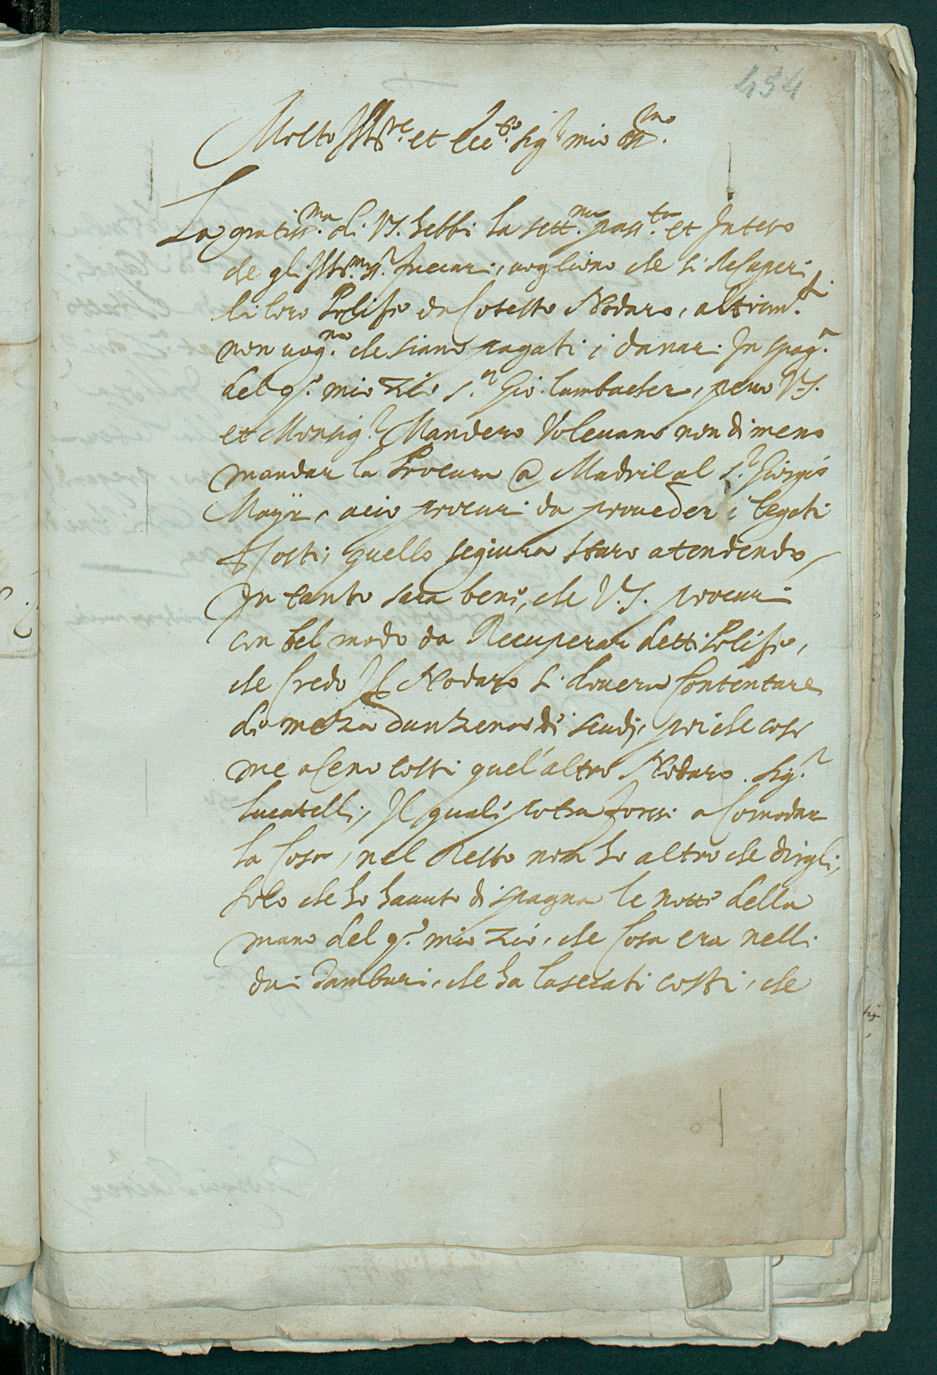 434
Molto Ill.re et Ecc.o sig.r mio oss.mo
La gratiss.ma di V.S. hebbi la sett.na pass.ta et Intero
che gli Ill.mi s.ri fuccari, vogliono che si Resuperi
li loro Polisse da Cotesto Nodaro, altrim.ti
non vog.no che siano pagati i danari In spag.a
del q. mio Zio s.r Gio: lambacher, pero V.S.
et Monsig.r Mandero Volevano non di meno
mandar la Procura a Madril al s.r Giorgio
Mayr, acio procuri da proveder i legati
Costi, quello seguira staro atendendo,
In tanto sara bene, che V.S. procuri
con bel modo da Recuperar detti Polisse,
che Credo Il Nodaro si dovera Contentare
di meza dunzena di scudi, poiche cosi
me aceno costi quel altro Nodaro sig.r
lucatelli, Il quale potra forse acomodar
la Cosa, nel Resto non ho altro che dirgli,
solo che ho havuto di spagna le notte della
mano del q. mio zio, che Cosa era nelli
dui Tamburi, che ha lasciati costi, che